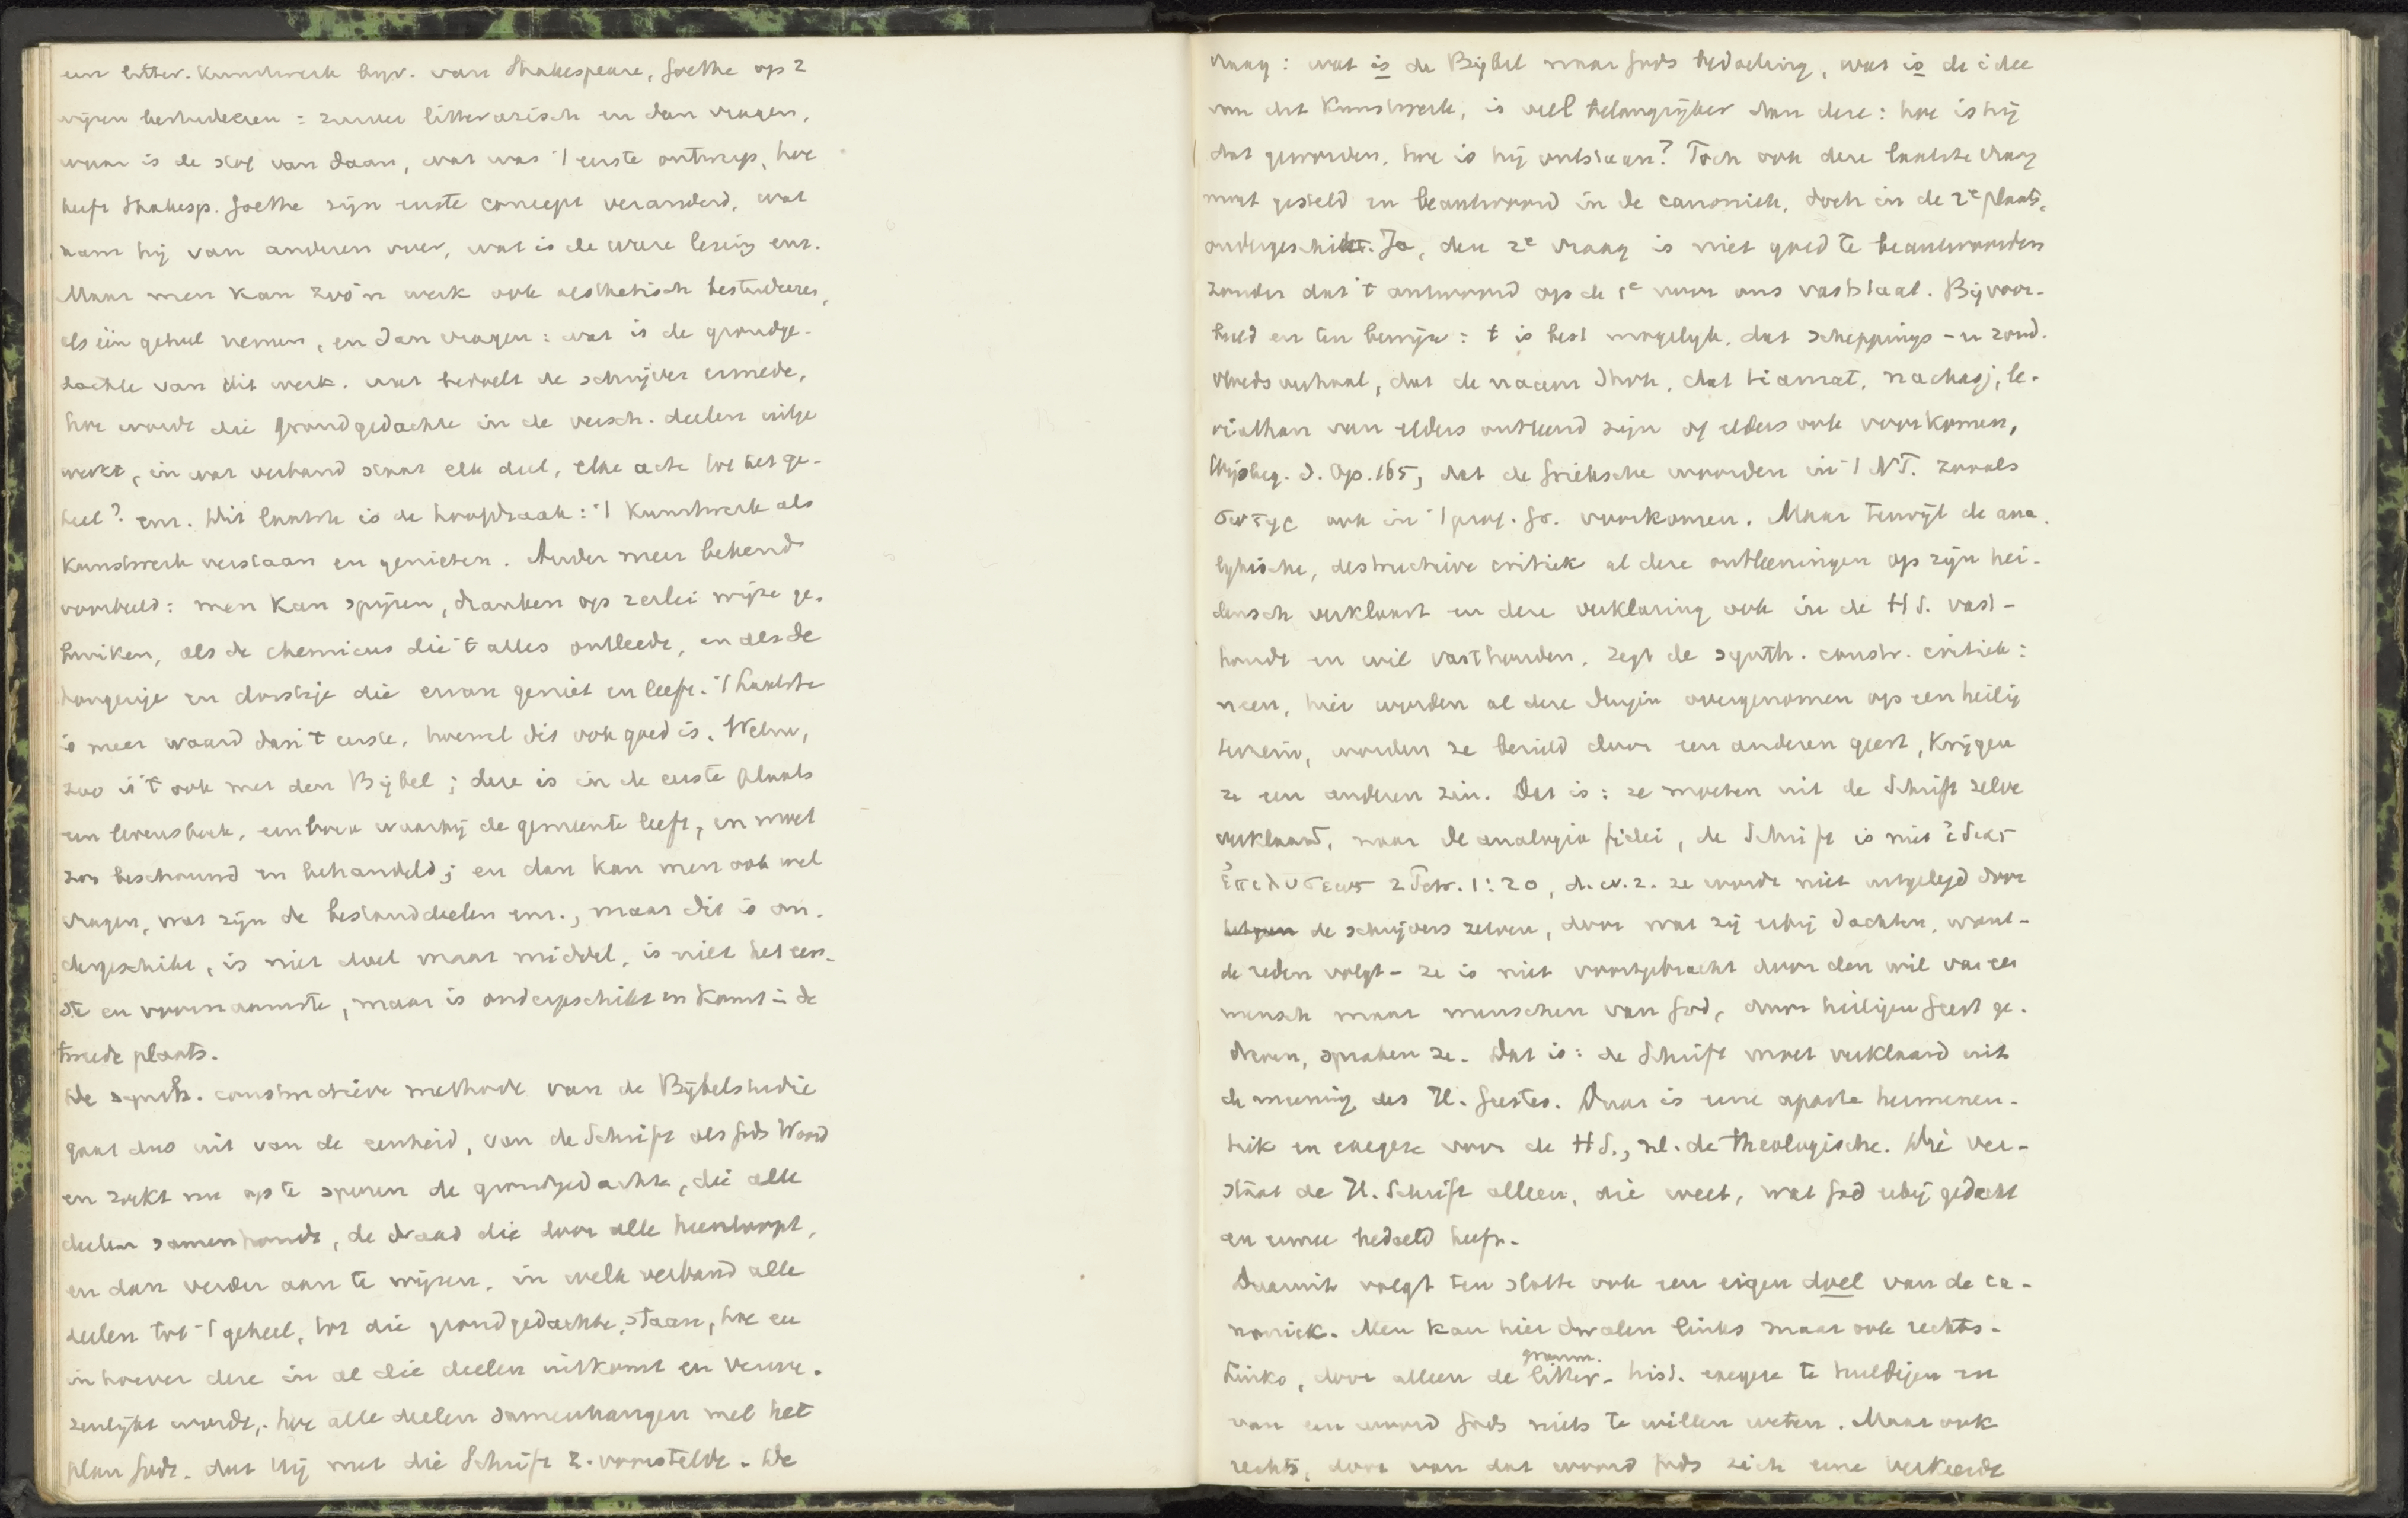 een litter. Kunstwerk bijv. van Shakespeare, Goethe op 2
wijzen bestudeeren: zuiver litterarisch en dan vragen,
waar is de stof van daan, wat was 't eerste ontwerp, hoe
heeft Shakesp. Goethe zijn eerste concept veranderd, wat
nam hij van anderen over, wat is de ware lezing enz.
Maar men kan zoo'n werk ook aesthetisch bestudeeren,
als één geheel nemen, en dan vragen: wat is de grondge-
dachte van dit werk. wat bedoelt de schrijver ermede,
hoe wordt die grondgedachte in de versch. deelen uitge
werkt, in wat verband staat elk deel, elke acte tot het ge-
heel? enz. Dit laatste is de hoofdzaak: 't Kunstwerk als
Kunstwerk verstaan en genieten. Ander meer bekend
voorbeeld: men kan spijzen, dranken op 2erlei wijze ge-
bruiken, als de chemicus die 't alles ontleedt, en als de
hongerige en dorstige die ervan geniet en leeft. 't Laatste
is meer waard dan 't eerste, hoewel dit ook goed is. Welnu,
zoo is 't ook met den Bijbel; deze is in de eerste plaats
een levensboek, een boek waarbij de gemeente leeft, en moet
zoo beschouwd en behandeld; en dan kan men ook wel
vragen, wat zijn de bestanddeelen enz., maar dit is on-
dergeschikt, is niet doel maar middel, is niet het eer-
ste en voornaamste, maar is ondergeschikt en komt in de
tweede plaats.
De synth. constructieve methode van de Bijbelstudie
gaat dus uit van de eenheid, van de Schrift als Gods Woord
en zoekt nu op te sporen de grondgedachte, die alle
deelen samenhoudt, de draad die door alle heenloopt,
en dan verder aan te wijzen, in welk verband alle
deelen tot 't geheel, tot die grondgedachte, staan, hoe en
in hoever deze in al die deelen uitkomt en verwe-
zenlijkt wordt, hoe alle deelen samenhangen met het
plan Gods, dat Hij met die Schrift Z. voorstelde. De
vraag: wat is de Bijbel naar Gods bedoeling, wat is de idee
van dit Kunstwerk, is veel belangrijker dan deze: hoe is hij
dat geworden, hoe is hij ontstaan? Toch ook deze laatste vraag
moet gesteld en beantwoord in de canoniek, doch in de 2e plaats,
ondergeschikt. Ja, deze 2e vraag is niet goed te beantwoorden
zonder dat 't antwoord op de 1e voor ons vaststaat. Bijvoor-
beeld en ten bewijze: 't is best mogelijk, dat scheppings- en zond-
vloedsverhaal, dat de naam Jhvh, dat tiamat, nachasj, le-
viathan van elders ontleend zijn of elders ook voorkomen,
Wijsbeg. d. Op. 165, dat de Grieksche woorden in 't N.T. zooals
ook in 't prof. Gr. voorkomen. Maar terwijl de ana-
lytische, destructieve critiek al deze ontleeningen op zijn hei-
densch verklaart en deze verklaring ook in de H S. vast-
houdt en wil vasthouden, zegt de synth. constr. critiek:
neen, hier worden al deze dingen overgenomen op een heilig
terrein, worden ze bezield door een anderen geest, krijgen
ze een anderen zin. Dat is: ze moeten uit de Schrift zelve
verklaard, naar de analogia fidei, de Schrift is niet ἰδίας
ἐπιλύσεως 2 Petr. 1:20, d.w.z. ze wordt niet uitgelegd door
de schrijvers zelven, door wat zij erbij dachten, want -
de reden volgt - ze is niet voortgebracht door den wil van een
mensch maar menschen van God, door heiligen Geest ge-
dreven, spraken ze. Dat is: de Schrift moet verklaard uit
de meening des H. Geestes. Daar is eene aparte hermeneu-
tiek en exegese voor de H S., nl. de theologische. Die ver-
staat de H. Schrift alleen, die weet, wat God erbij gedacht
en ermee bedoeld heeft.
Daaruit volgt ten slotte ook een eigen doel van de ca-
noniek. Men kan hier dwalen links maar ook rechts.
gramm.
Links, door alleen de litter.- hist. exegese te huldigen en
van een woord Gods niets te willen weten. Maar ook
rechts, door van dat woord Gods zich eene verkeerde